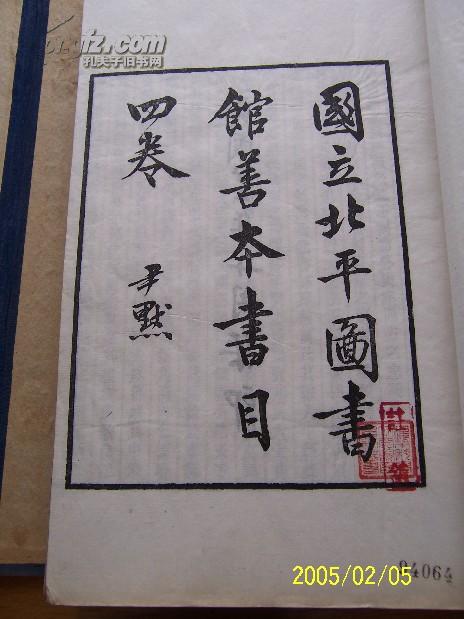 國立北平圖書
館善本書目
四卷
尹默
孔夫子旧书网
04064
2005/02/05